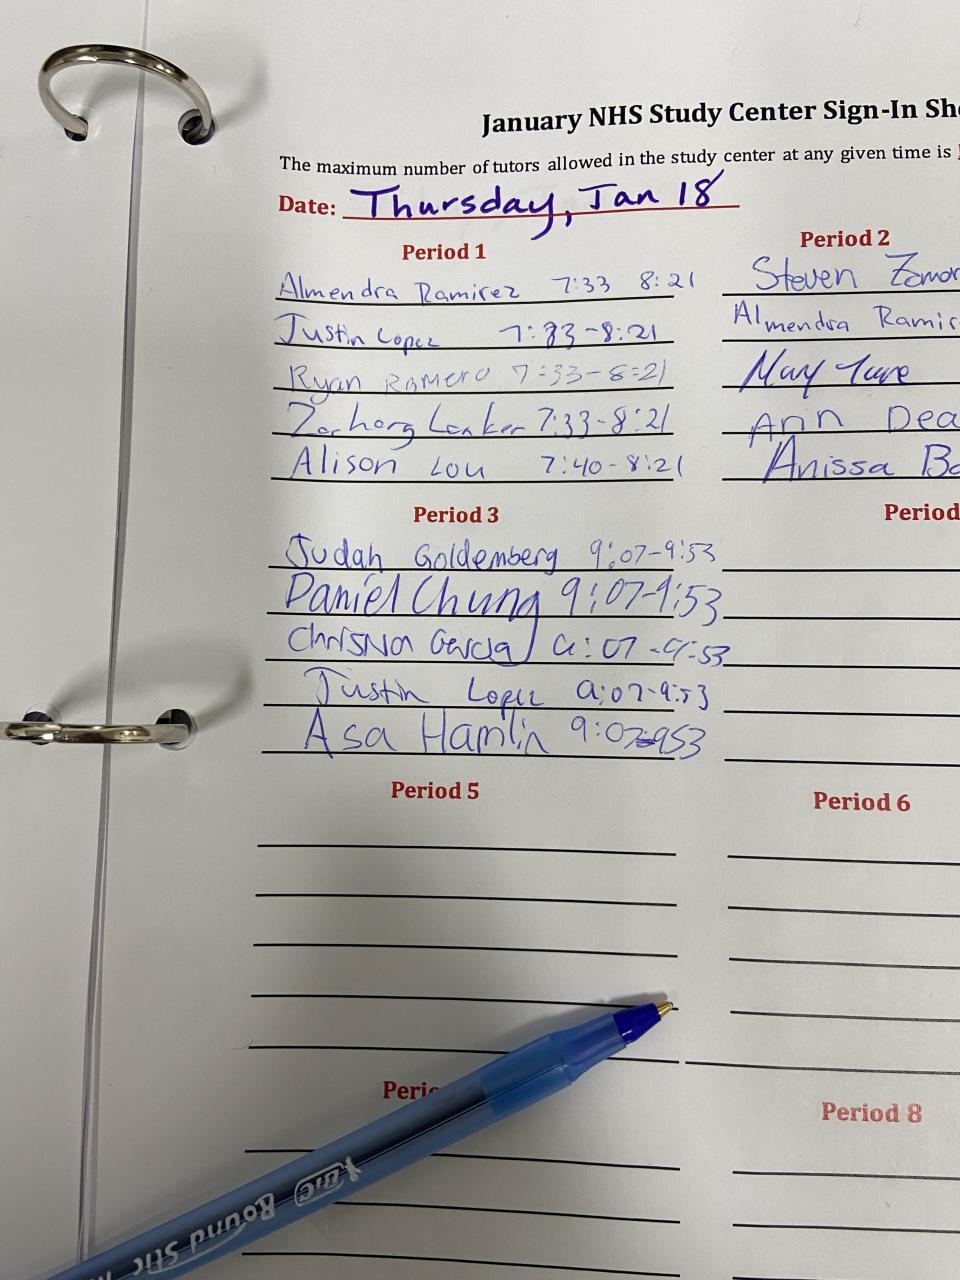 January NHS Study Center Sign-In Sh
The maximum number of tutors allowed in the study center at any given time is
Date: Thursday, Jan 18
Period 1
Almendra Ramirez 7:33 8:21
Justin Lopez 7:33-8:21
Ryan Romero 7:33-8:21
7:33-8:21
Alison Lou 7:40-8:21
Period 2
Steven Zamor
Almendra Ramir
May
Arin Dea
Anissa Ba
Period 3
Judah Goldemberg 9:07-9:53
Daniel Chung 9:07-9:53
Garcia 9:07-9:53
Justin Lopez 9:07-9:53
Asa Hamlin 9:07-953
Period
Period 5
Period 6
Perio
Period 8
BIC Round Stic